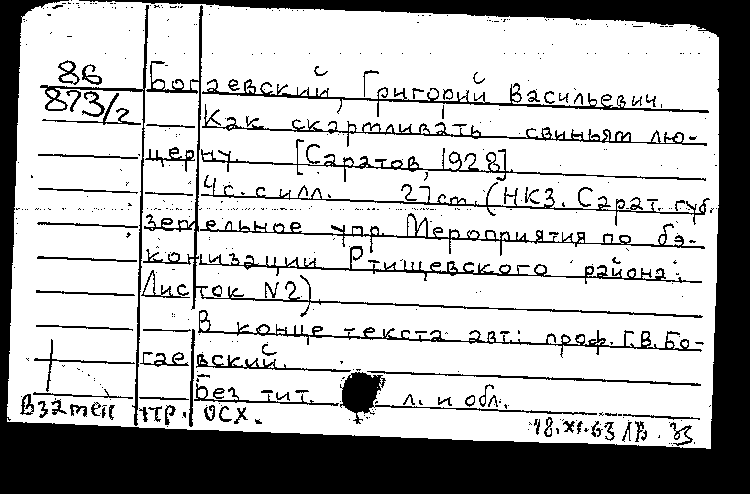 86 Богаевский, Григорий Васильевич.
873/2 Как скармливать свиньям лю-
церну. [Саратов, 1928]
4 с. с илл. 27 см. (НКЗ. Сарат. губ.
земельное упр. Мероприятия по бэ-
конизации Ртищевского района.
Листок N2)
В конце текста авт.: проф. Г.В. Бо-
гаевский.
Без тит. л. и обл.
Взамен пр. ОСХ. 18.XI.63 ЛВ. 33